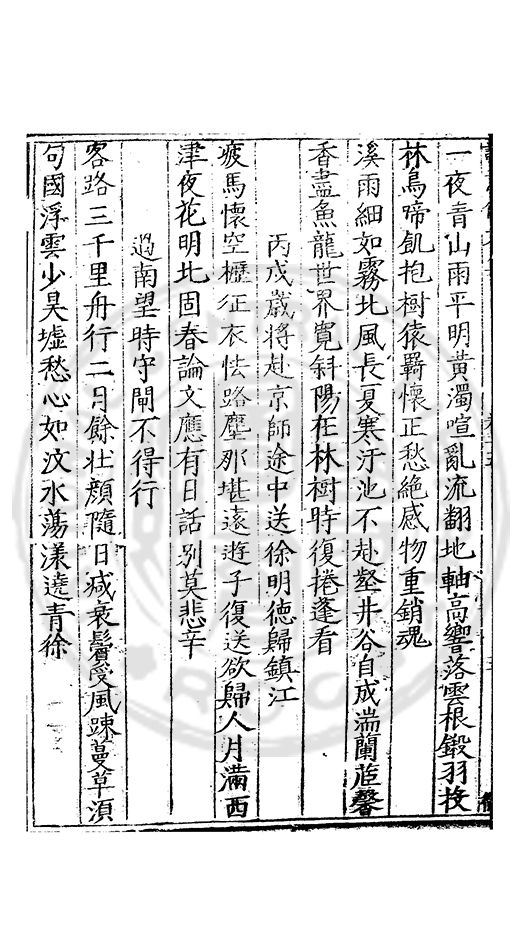 一夜青山雨平明黃濁喧亂流翻地軸高響落雲根鎩羽投
林鳥啼飢抱樹猿羇懷正愁絶感物重銷魂
溪雨細如霧北風長夏寒汙池不赴壑井谷自成湍蘭茝馨
香盡魚龍世界寬斜陽在林樹時復捲蓬看
丙戍歲將赴京師途中送徐明德歸鎮江
疲馬懷空櫪征衣怯路塵那堪遠遊子復送欲歸人月滿西
津夜花明北固春論文應有日話别莫悲辛
過南望時守閘不得行
客路三千里舟行二月餘壯顔隨日减衰鬢受風踈蔓草湏
句國浮雲少昊墟愁心如汶水蕩漾遶青徐